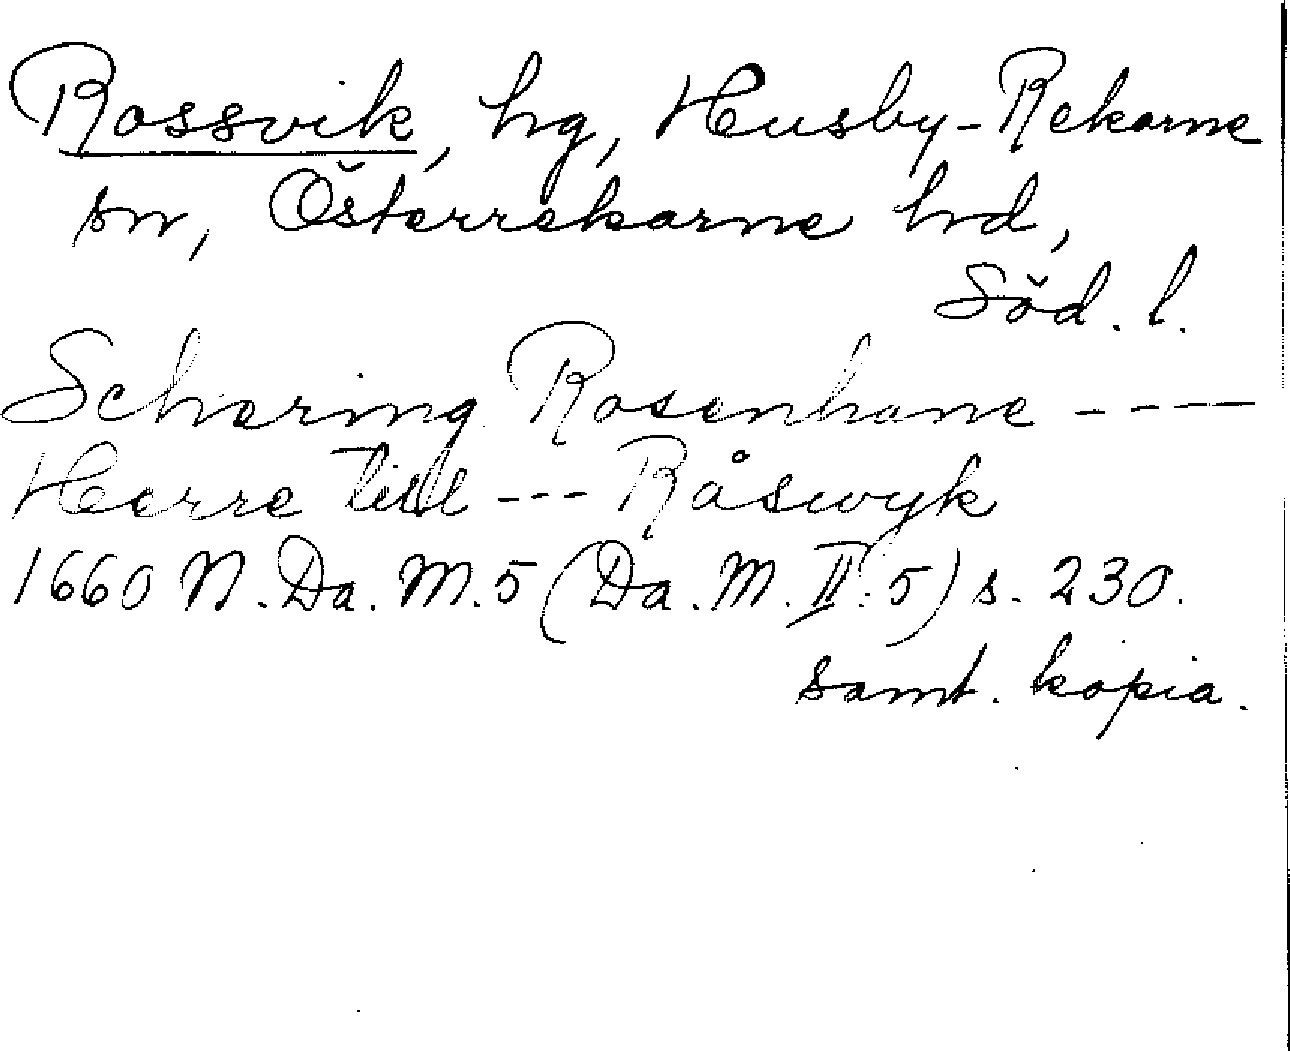 Rossvik, hg, Husby-Rekarne
sn, Österrekarne hd,
Söd. l.
Schering Rosenhane ----
Herre till --- Råswyk
1660 N. Da. M. 5 (Da. M. II: 5) s. 230.
samt. kopia.